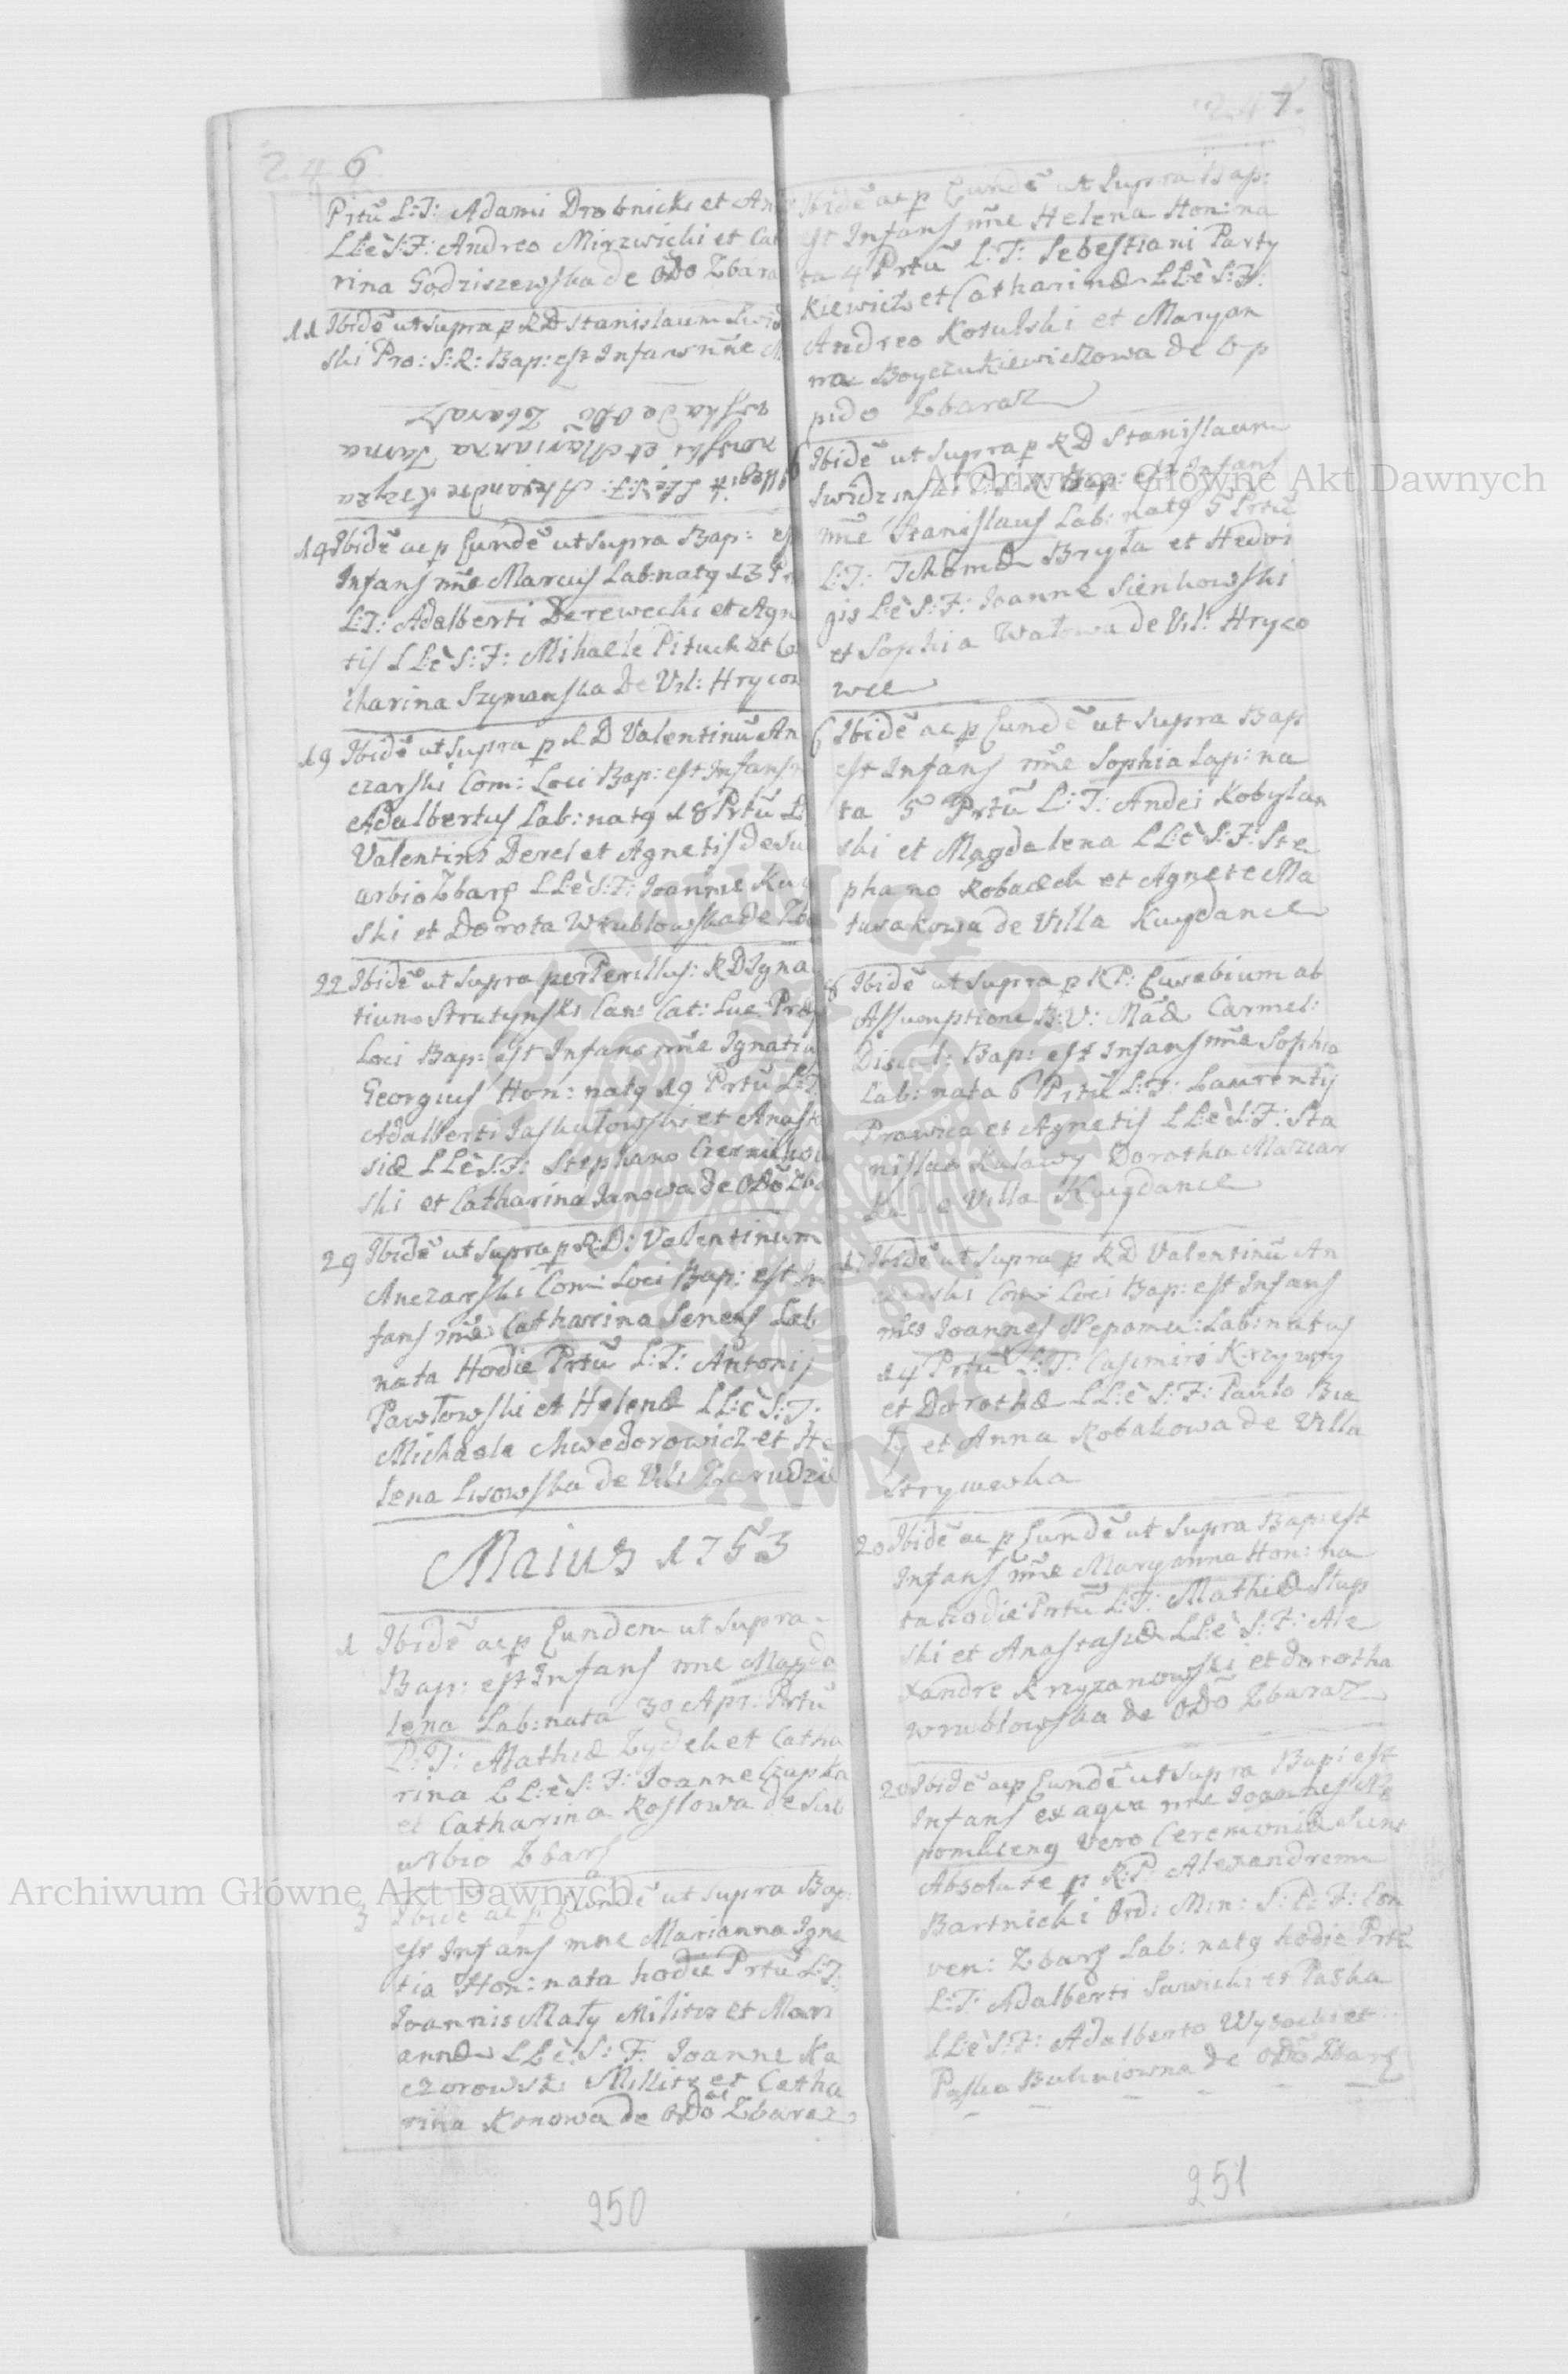 246
Prtũ L:T: Adami Drobnicki et An
LLeS:F: Andreo Mirzwicki et Cat
rina Godziszewska de ODo Zbara
11 Ibidẽ ut supra p RD Stanislaum Swid
ski Pro: S:R: Bap: est Infans nñe
LLeS:F: Alexandre
et Marianna
de ODo Zbaraz
14 Ibidẽ ac p Eundẽ ut supra Bap: est
Infans nñe Marcus Lab: natq 13 Pr
L:T: Adalberti Derewecki et Agne
tis LLeS:F: Mihaele Pituch et Ca
tharina Szymanska de Vil: Hrycow
19 Ibidẽ ut supra p RD Valentinũ An
czarski Com: Loci Bap: est Infans n
Adalbertus Lab: natq 18 Prtũ L:
Valentini Derel et Agnetis de Su
urbio Zbarz LLeS:F: Joanne Ku
ski et Dorota Wrublowska de Zba
22 Ibidẽ ut supra per Perillus: RD Igna
tium Strutynski Can: Cat: Luc: Præp
Loci Bap: est Infans nñe Ignatius
Georgius Hon: natq 19 Prtũ L:T:
Adalberti Jaskulowski et Anasta
siæ LLeS:F: Stephano Czernihow
ski et Catharina Janowa de ODo Zba
29 Ibidẽ ut supra p R:D: Valentinum
Anczarski Com: Loci Bap: est In
fans nñe Catharina Senens Lab
nata Hodie Prtũ L:T: Antonij
Pawłowski et Helenæ LLeS:F:
Michaele Chwedorowicz et He
lena Lisowska de Vil: Zarudzie
Maius 1753
1 Ibidẽ ac p Eundem ut supra
Bap: est Infans nñe Magda
lena Lab: nata 30 Apr: Prtũ
L:T: Mathiæ Zydek et Catha
rina LLeS:F: Joanne Czapka
et Catharina Koslowa de Sub
urbio Zbarz
3 Ibidẽ ac p Eundẽ ut supra Bap:
est Infans nñe Marianna Igna
tia Hon: nata hodie Prtũ L:T:
Joannis Mały Militis et Mari
annæ LLeS:F: Joanne Ka
czorowski Militis et Catha
rina Konowa de ODo Zbaraz
250
247
Ibidẽ ac p Eundẽ ut supra Bap:
est Infans nñe Helena Hon: na
ta 4 Prtũ L:T: Sebestiani Party
kiewicz et Catharinæ LLeS:F:
Andreo Kotulski et Maryan
na Boyczukiewiczowa de Op
pido Zbaraz
6 Ibidẽ ut supra p RD Stanislaum
Swidzinski P: S: R: Bap: est Infans
nñe Stanislaus Lab: natq 5 Prtũ
L:T: Thomæ Bryła et Hedvi
gis LeS:F: Joanne Sienkowski
et Sophia Wałowa de Vil: Hryco
wce
6 Ibidẽ ac p Eundẽ ut supra Bap
est Infans nñe Sophia Lap: na
ta 5 Prtũ L:T: Andei Kobylan
ski et Magdelena LLeS:F: Ste
phano Robacek et Agnete Ma
tusakowa de Villa Kuydance
8 Ibidẽ ut supra p RP: Eusebium ab
Assumptione B:V: Mãæ Carmel:
Discal: Bap: est Infans nñe Sophia
Lab: nata 6 Prtũ L:T: Laurentij
Prawica et Agnetis LLeS:F: Sta
nislao Kulawy Dorotha Mazur
ka de Villa Kuydance
17 Ibidẽ ut supra p RD Valentinũ An
czarski Com: Loci Bap: est Infans
nñe Joannes Nepomu: Lab: natus
14 Prtũ L:T: Casimiri Krzywy
et Dorothæ LLeS:F: Paulo Bia
ły et Anna Robakowa de Villa
Stryiewka
20 Ibidẽ ac p Eundẽ ut supra Bap: est
Infans nñe Maryanna Hon: na
ta hodie Prtũ L:T: Mathiæ Stup
ski et Anastasiæ LLeS:F: Ale
xandre Krzyzanowski et Dorotha
Wrublowska de ODo Zbaraz
20 Ibidẽ ac p Eundẽ ut supra Bap: est
Infans ex aqua nñe Joannes Ne
pomuceng Vero Ceremoniæ Sunt
Absolute p R:P: Alexandrem
Bartnicki Ord: Min: S: P: F: Con
ven: Zbarz Lab: natq hodie Prtũ
L:T: Adalberti Sawicki et Paska
LLeS:F: Adalberto Wysocki et
Paska Buhniowna de ODo Zbarz
251
Archiwum Główne Akt Dawnych
Archiwum Główne Akt Dawnych
ARCHIWUM GŁÓWNE AKT DAWNYCH